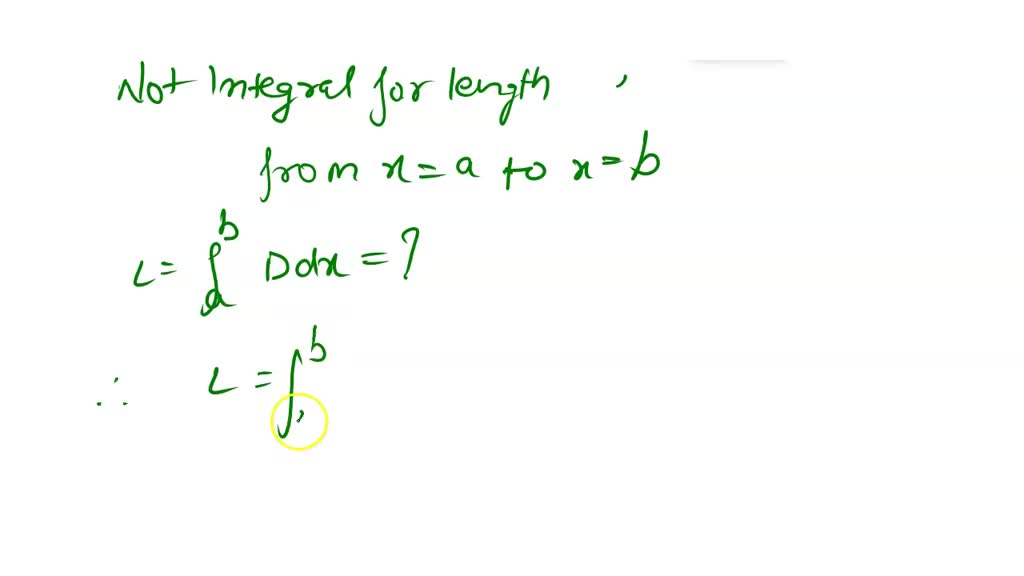 Not Integral for length ,
from x = a to x = b
L = ∫_a^b D dx = ?
∴ L = ∫^b